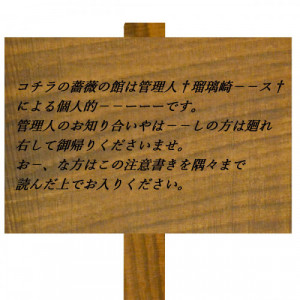 コチラの薔薇の館は管理人†瑠璃崎ーース†
による個人的ーーーーーです。
管理人のお知り合いやはーーしの方は廻れ
右して御帰りくださいませ。
おー、な方はこの注意書きを隅々まで
読んだ上でお入りください。